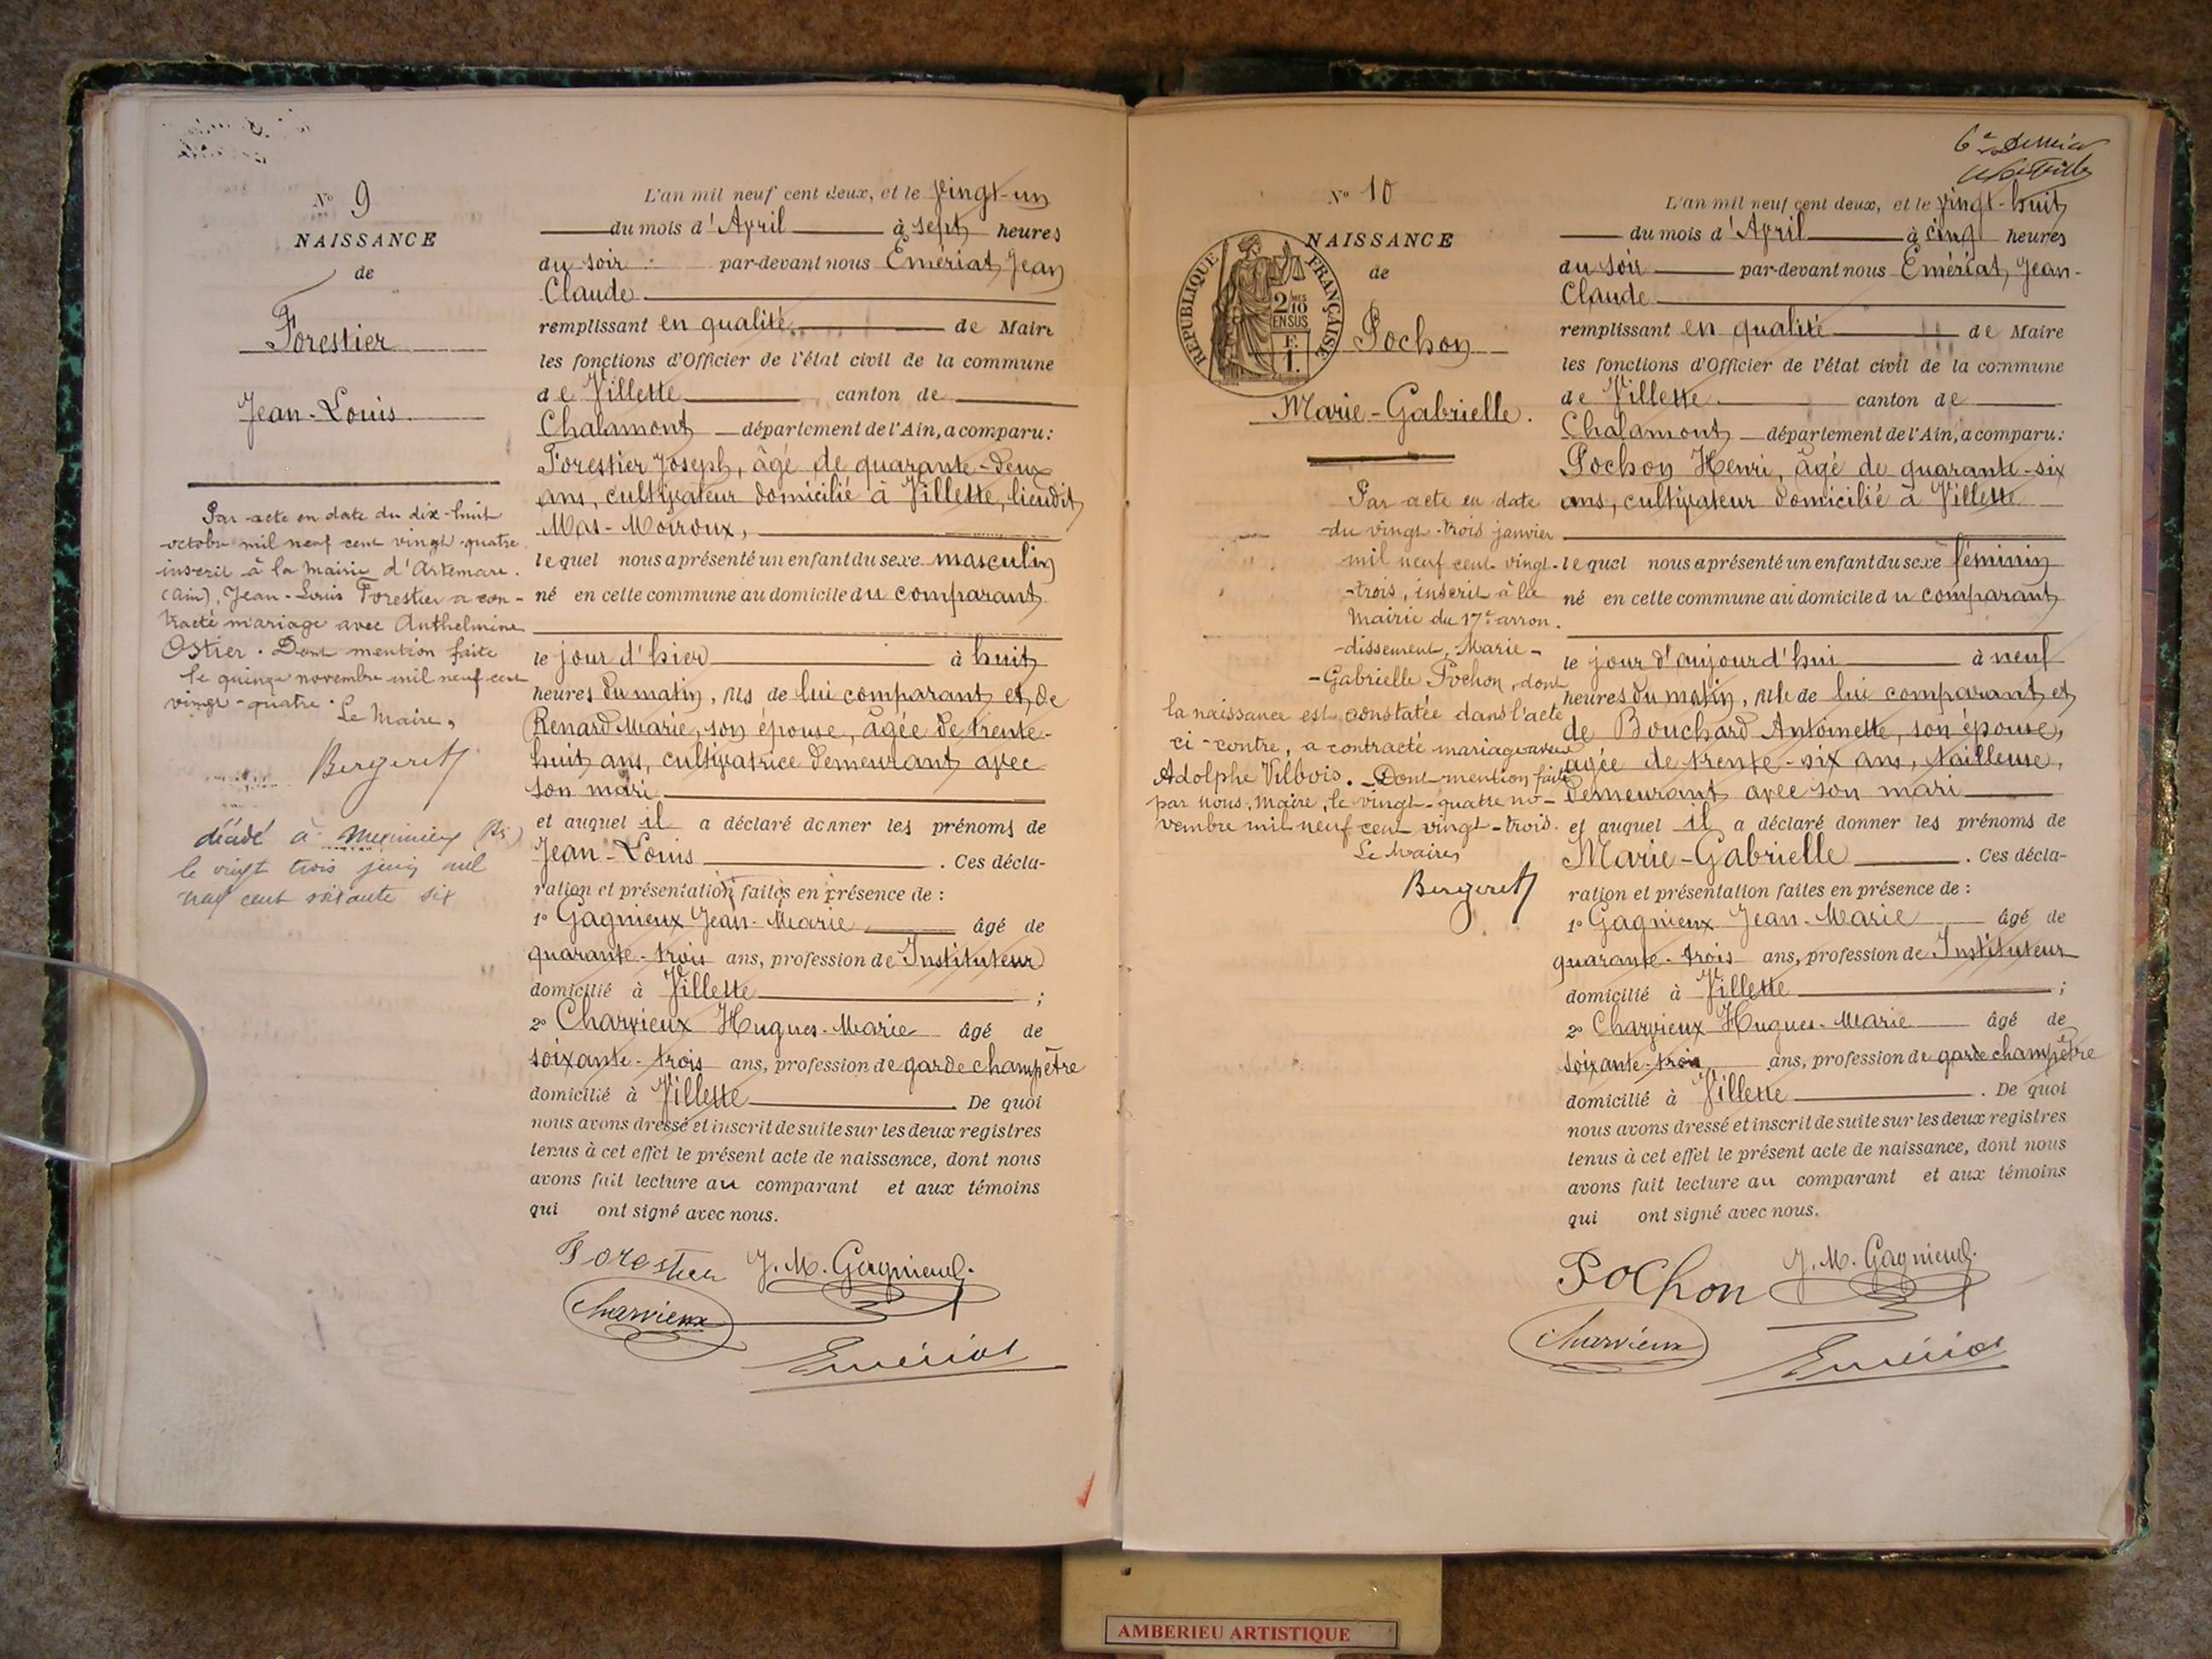 N° 9
NAISSANCE
de
Forestier
Jean-Louis
Par acte en date du dix-huit
octobre mil neuf cent vingt quatre
inscrit à la Mairie d'Artemare
(Ain), Jean-Louis Forestier a con-
tracté mariage avec Anthelmine
Ostier. Dont mention faite
le quinze novembre mil neuf cent
vingt-quatre.
Le Maire,
Bergeret
décédé à Meximieux
le vingt trois juin mil
neuf cent soixante six
L'an mil neuf cent deux, et le vingt-un
du mois d'Avril à sept heures
du soir par-devant nous Emériat, Jean
Claude
remplissant en qualité de Maire
les fonctions d'Officier de l'état civil de la commune
de Villette canton de
Chalamont département de l'Ain, a comparu:
Forestier Joseph, âgé de quarante-deux
ans, cultivateur domicilié à Villette, lieudit
Mas-Moiroux,
lequel nous a présenté un enfant du sexe masculin
né en cette commune au domicile du comparant
le jour d'hier à huit
heures du matin, fils de lui comparant et de
Renard Marie, son épouse, âgée de trente-
huit ans, cultivatrice demeurant avec
son mari
et auquel il a déclaré donner les prénoms de
Jean-Louis . Ces décla-
ration et présentation faites en présence de :
1° Gagnieux Jean-Marie, âgé de
quarante-trois ans, profession de Instituteur
domicilié à Villette ;
2° Charvieux Hugues-Marie âgé de
soixante-trois ans, profession de garde champêtre
domicilié à Villette . De quoi
nous avons dressé et inscrit de suite sur les deux registres
tenus à cet effet le présent acte de naissance, dont nous
avons fait lecture au comparant et aux témoins
qui ont signé avec nous.
Forestier J. M. Gagnieux
Charvieux
Emériat
6e dernier
N° 10
NAISSANCE
de
REPUBLIQUE FRANÇAISE
2/10 MES
EN SUS
F.
1.
Pochon
Marie-Gabrielle.
Par acte en date
du vingt-trois janvier
mil neuf cent vingt-
-trois, inscrit à la
Mairie du 17e arron.
-dissement, Marie-
-Gabrielle Pochon, dont
la naissance est constatée dans l'acte
ci-contre, a contracté mariage avec
Adolphe Vilbois. Dont mention faite
par nous, Maire, le vingt-quatre no-
vembre mil neuf cent vingt-trois.
Le Maire,
Bergeret
L'an mil neuf cent deux, et le vingt-huit
du mois d'Avril à cinq heures
du soir par-devant nous Emériat, Jean-
Claude
remplissant en qualité de Maire
les fonctions d'Officier de l'état civil de la commune
de Villette canton de
Chalamont département de l'Ain, a comparu:
Pochon Henri, âgé de quarante-six
ans, cultivateur domicilié à Villette
lequel nous a présenté un enfant du sexe féminin
né en cette commune au domicile du comparant
le jour d'aujourd'hui à neuf
heures du matin, fille de lui comparant et
de Bouchard Antoinette, son épouse,
âgée de trente-six ans, tailleuse,
demeurant avec son mari
et auquel il a déclaré donner les prénoms de
Marie-Gabrielle . Ces décla-
ration et présentation faites en présence de :
1° Gagnieux Jean-Marie âgé de
quarante-trois ans, profession de Instituteur
domicilié à Villette ;
2° Charvieux Hugues-Marie âgé de
soixante-trois ans, profession de garde champêtre
domicilié à Villette . De quoi
nous avons dressé et inscrit de suite sur les deux registres
tenus à cet effet le présent acte de naissance, dont nous
avons fait lecture au comparant et aux témoins
qui ont signé avec nous.
Pochon J. M. Gagnieux
Charvieux
Emériat
AMBERIEU ARTISTIQUE